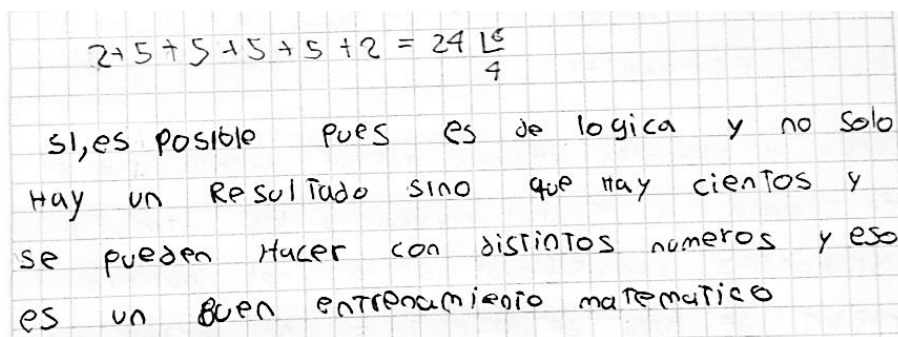 2+5+5+5+5+2 = 24 6
4
SI, es posible pues es de logica y no solo
Hay un Resultado sino que Hay cientos y
se pueden Hacer con distintos numeros y eso
es un Buen entrenamiento matematico